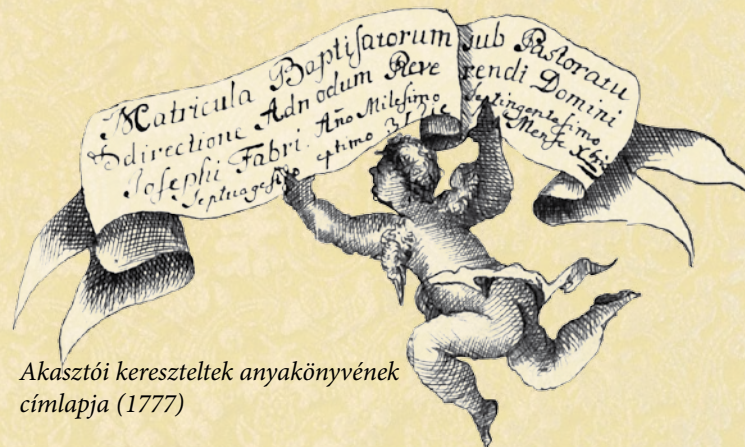 Matricula Baptisatorum sub Pastoratu
directione Admodum Reverendi Domini
Josephi Fabri. Año Milesimo Septingentesimo
Septuagesimo eptimo 31 Die Mense Xbri
Akasztói kereszteltek anyakönyvének
címlapja (1777)